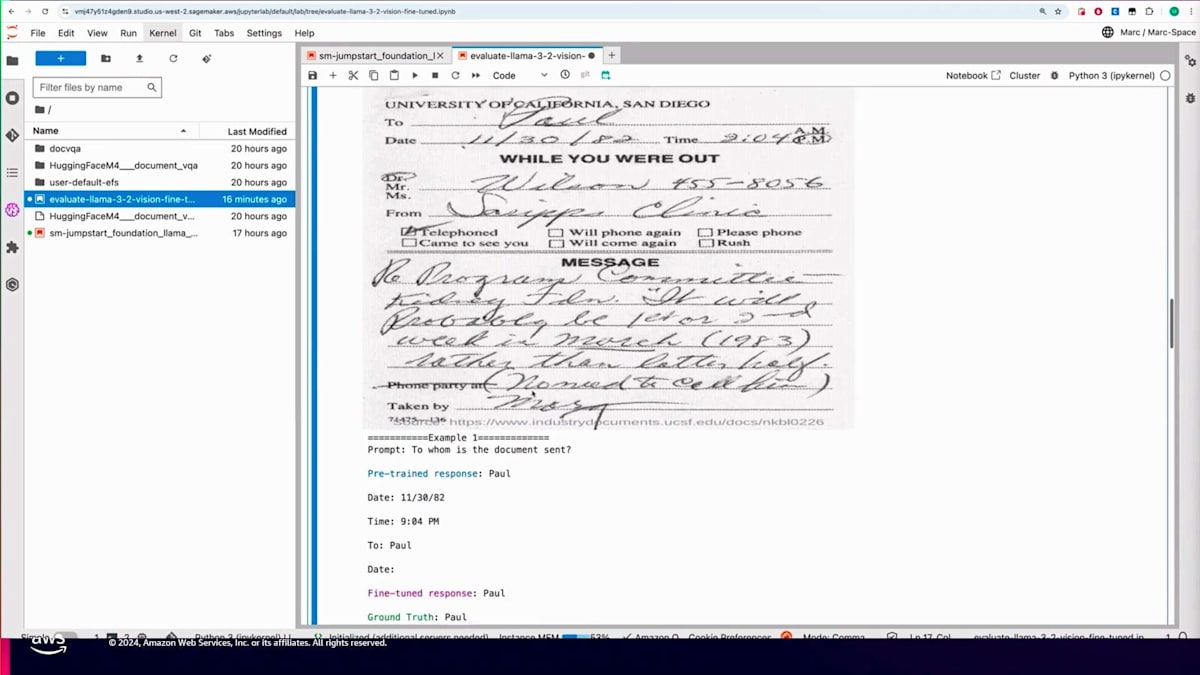 vmj47y51z4gden9.studio.us-west-2.sagemaker.aws/jupyterlab/default/lab/tree/evaluate-llama-3-2-vision-fine-tuned.ipynb
File Edit View Run Kernel Git Tabs Settings Help
Marc / Marc-Space
sm-jumpstart_foundation_l
evaluate-llama-3-2-vision-
Code
Notebook
Cluster
Python 3 (ipykernel)
Filter files by name
/
Name
Last Modified
docvqa 20 hours ago
HuggingFaceM4___document_vqa 20 hours ago
user-default-efs 20 hours ago
evaluate-llama-3-2-vision-fine-t... 16 minutes ago
HuggingFaceM4___document_v... 20 hours ago
sm-jumpstart_foundation_llama_... 17 hours ago
UNIVERSITY OF CALIFORNIA, SAN DIEGO
To Paul
Date 11/30/82 Time A.M. P.M.
WHILE YOU WERE OUT
Dr.
Mr. Wilson 455-8056
Ms.
From Scripps Clinic
Telephoned Will phone again Please phone
Came to see you Will come again Rush
MESSAGE
Re Program Committee
Kidney Fdn. "It will
Probably be 1st or 2nd
week in March (1983)
rather than latter half.
Phone party at (No need to call him)
Taken by
Source: https://www.industrydocuments.ucsf.edu/docs/nkbl0226
===========Example 1=============
Prompt: To whom is the document sent?
Pre-trained response: Paul
Date: 11/30/82
Time: 9:04 PM
To: Paul
Date:
Fine-tuned response: Paul
Ground Truth: Paul
aws
© 2024, Amazon Web Services, Inc. or its affiliates. All rights reserved.